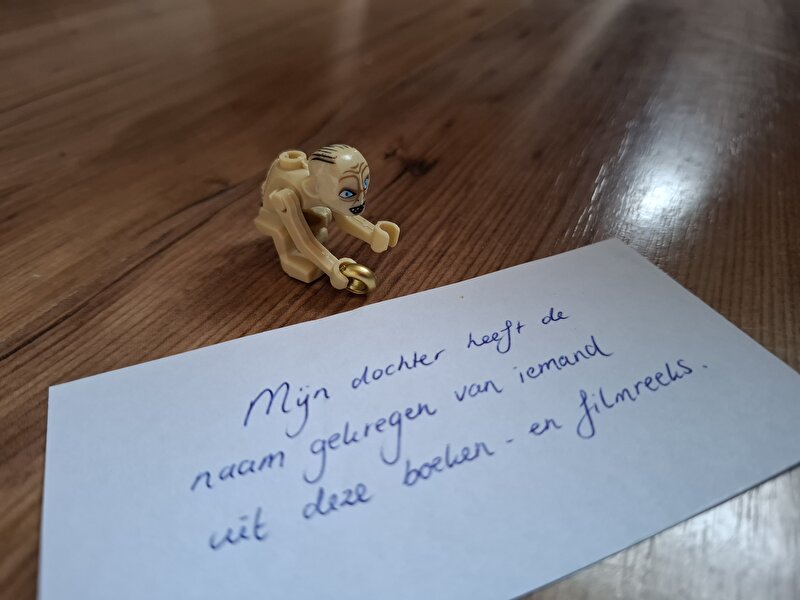 Mijn dochter heeft de
naam gekregen van iemand
uit deze boeken- en filmreeks.